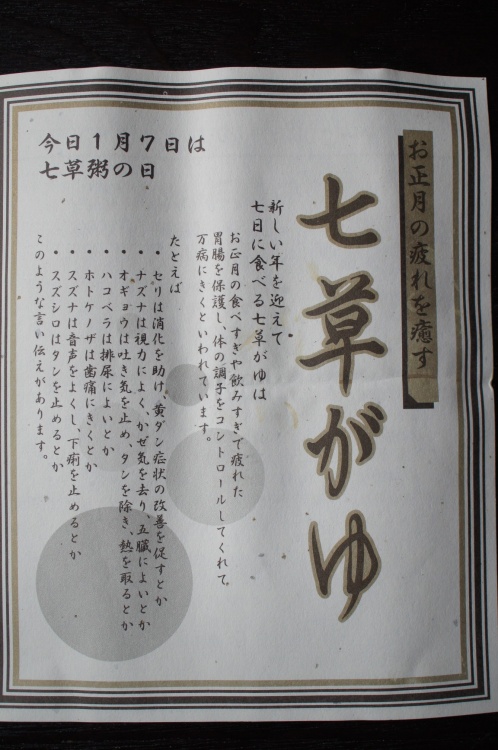 今日1月7日は
七草粥の日
お正月の疲れを癒す
七草がゆ
新しい年を迎えて
七日に食べる七草がゆは
お正月の食べすぎや飲みすぎで疲れた
胃腸を保護し、体の調子をコントロールしてくれて、
万病にきくといわれています。
たとえば
・セリは消化を助け、黄ダン症状の改善を促すとか
・ナズナは視力によく、かぜ気を去り、五臓によいとか
・オギョウは吐き気を止め、タンを除き、熱を取るとか
・ハコベラは排尿によいとか
・ホトケノザは歯痛にきくとか
・スズナは音声をよくし、下痢を止めるとか
・スズシロはタンを止めるとか
このような言い伝えがあります。